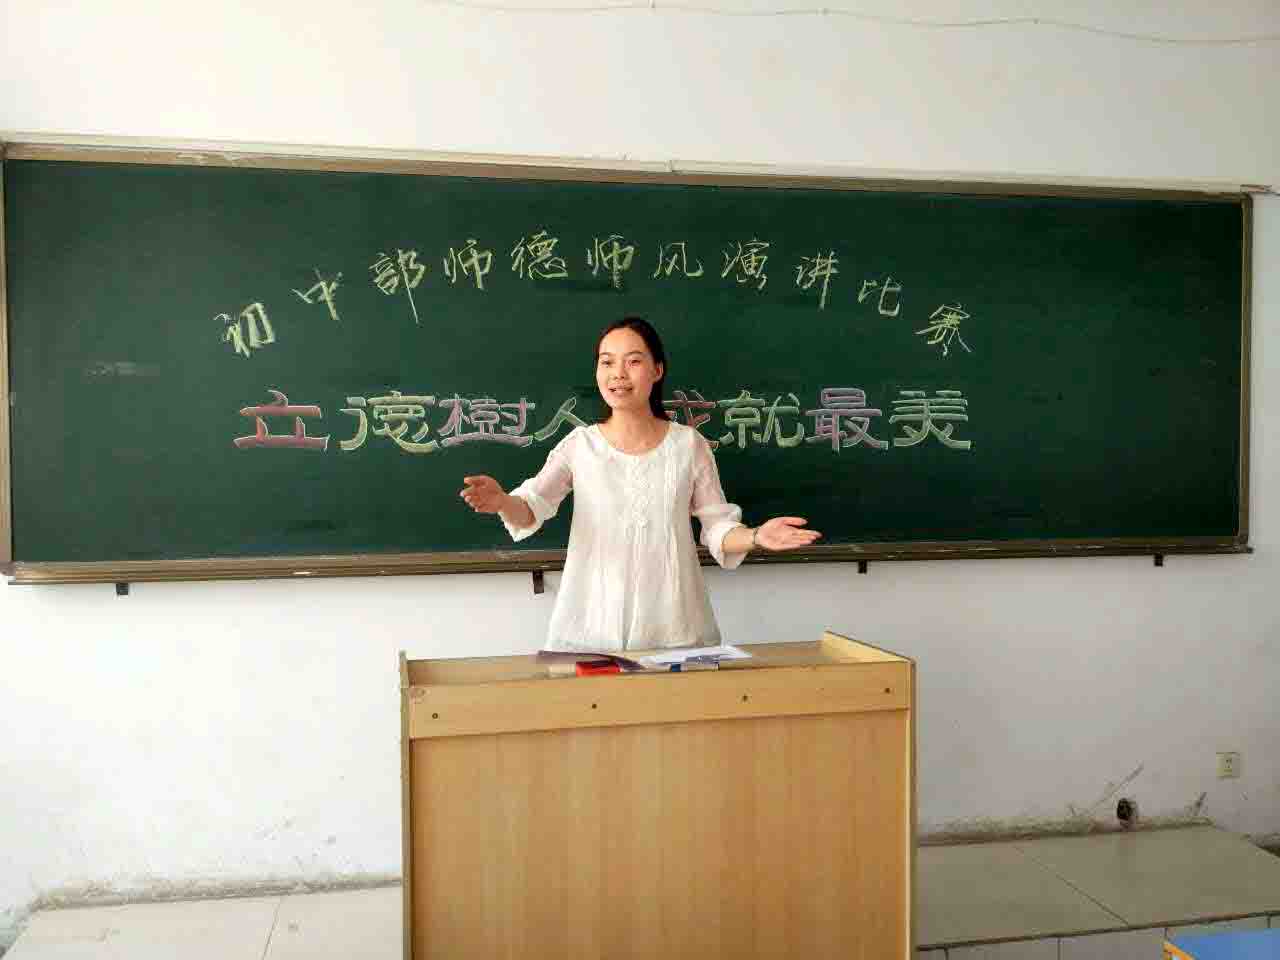 初中部师德师风演讲比赛
立德樹人 成就最美